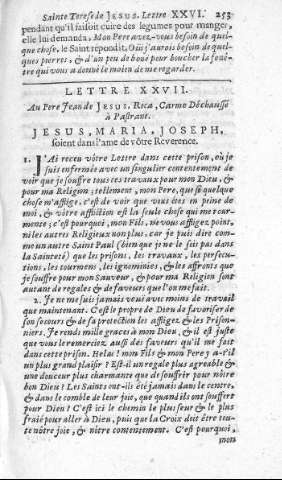 Sainte Terese de JESUS. Lettre XXVI. 253
pendant qu'il faisoit cuire des legumes pour manger,
elle lui demanda; Mon Pere avez-vous besoin de quel-
que chose, le Saint répondit, Oüi j'aurois besoin de quel-
ques pierres, & d'un peu de boüe pour boucher la fenê-
tre qui vous a donné le moïen de me regarder.
LETTRE XXVII.
Au Pere Jean de JESUS. Roca, Carme Déchaussé
à Pastrane.
JESUS, MARIA, JOSEPH,
soient dans l'ame de vôtre Reverence.
1. J'Ai receu vôtre Lettre dans cette prison, où je
suis enfermée avec un singulier contentement de
voir que je souffre tous ces travaux pour mon Dieu, &
pour ma Religion; tellement, mon Pere, que si quelque
chose m'afflige, c'est de voir que vous êtes en peine
de moi, & vôtre affliction est la seule chose qui me tour-
mente; c'est pourquoi, mon Fils, ne vous affligez point,
ni les autres Religieux non plus, car je puis dire com-
me un autre Saint Paul (bien que je ne le sois pas dans
la Sainteté) que les prisons, les travaux, les persecu-
tions, les tourmens, les ignominies, & les affronts que
je souffre pour mon Sauveur, & pour ma Religion sont
autant de regales & de faveurs que l'on me fait.
2. Je ne me suis jamais veuë avec moins de travail
que maintenant. C'est le propre de Dieu de favoriser de
son secours & de sa protection les affligez & les Prison-
niers. Je rends mille graces à mon Dieu, & il est juste
que vous le remerciez aussi des faveurs qu'il me fait
dans cette prison. Helas! mon Fils & mon Pere y a-t'il
un plus grand plaisir? Est-il un regale plus agreable &
une douceur plus charmante que de souffrir pour nôtre
bon Dieu? Les Saints ont-ils été jamais dans le centre,
& dans le comble de leur joie, que quand ils ont souffert
pour Dieu? C'est ici le chemin le plus seur & le plus
fraïé pour aller à Dieu, puis que la Croix doit être tou-
te nôtre joie, & nôtre contentement. C'est pourquoi,
mon